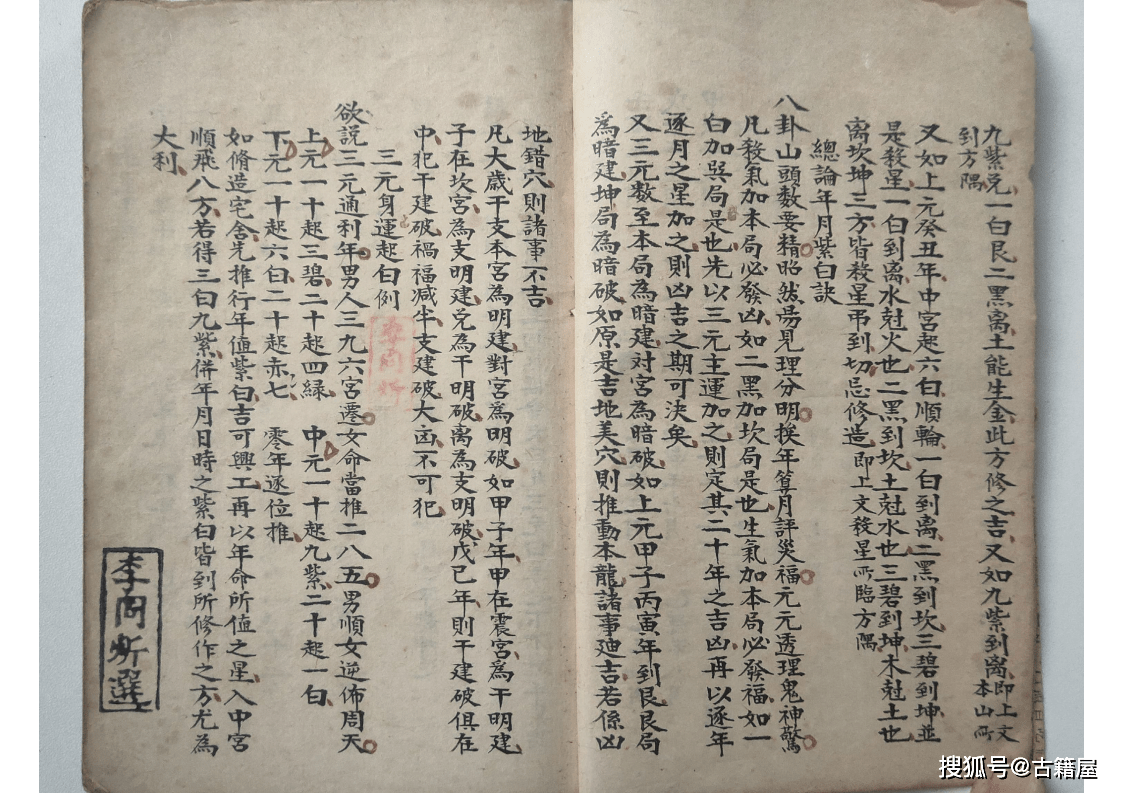 九紫兑一白艮二黑离土能生金此方修之吉又如九紫到离即上文本山所
到方隅
又如上元癸丑年中宫起六白順輪一白到离二黑到坎三碧到坤並
是殺星一白到离水尅火也二黑到坎土尅水也三碧到坤木尅土也
离坎坤三方皆殺星弔到切忌修造即上文殺星所臨方隅
總論年月紫白訣
八卦山頭数要精昭然昜見理分明挨年算月評災福元元透理鬼神驚
凡殺氣加本局必發凶如二黑加坎局是也生氣加本局必發福如一
白加巽局是也先以三元主運加之則定其二十年之吉凶再以逐年
逐月之星加之則凶吉之期可決矣
又三元数至本局為暗建对宮為暗破如上元甲子丙寅年到艮艮局
為暗建坤局為暗破如原是吉地美穴則推動本龍諸事廸吉若係凶
地錯穴則諸事不吉
凡大歳干支本宮為明建對宮為明破如甲子年甲在震宮為干明建
子在坎宮為支明建兑為干明破离為支明破戊己年則干建破俱在
中犯干建破禍福减半支建破大凶不可犯
三元身運起白例
欲説三元通利年男人三九六宮遷女命當推二八五男順女逆佈周天
上元一十起三碧二十起四緑 中元一十起九紫二十起一白
下元一十起六白二十起赤七 零年逐位推
如脩造宅舍先推行年值紫白吉可興工再以年命所值之星入中宮
順飛八方若得三白九紫併年月日時之紫白皆到所修作之方尤為
大利
李向斯選
搜狐号@古籍屋